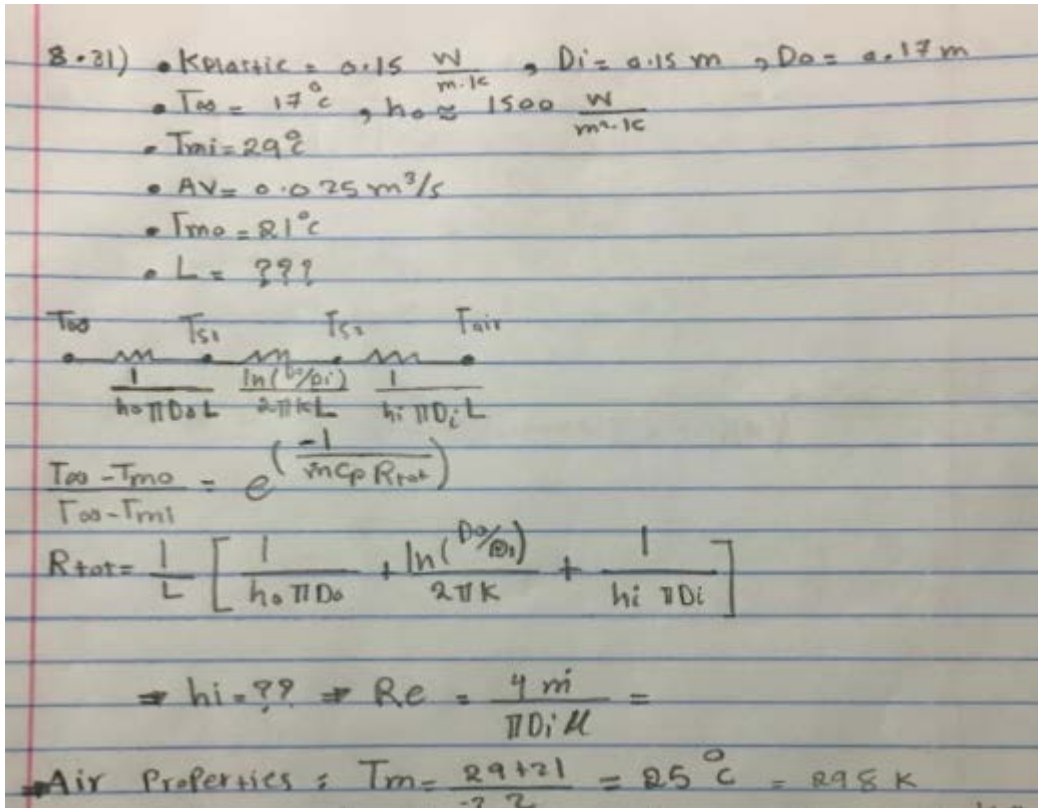 8.31) • Kplastic = 0.15 W/m.k , Di = 0.15 m , Do = 0.17 m
• T∞ = 17°c , ho ≈ 1500 W/m².k
• Tmi = 29°c
• AV = 0.025 m³/s
• Tmo = 21°c
• L = ???
T∞ Ts1 Ts2 Tair
1/(ho π Do L) ln(Do/Di)/(2πkL) 1/(hi π Di L)
(T∞ - Tmo)/(T∞ - Tmi) = e^(-1/(ṁ Cp Rtot))
Rtot = 1/L [ 1/(ho π Do) + ln(Do/Di)/(2πK) + 1/(hi π Di) ]
⇒ hi = ?? ⇒ Re = 4ṁ/(π Di μ) =
⇒ Air Properties : Tm = (29+21)/2 = 25°c = 298 K